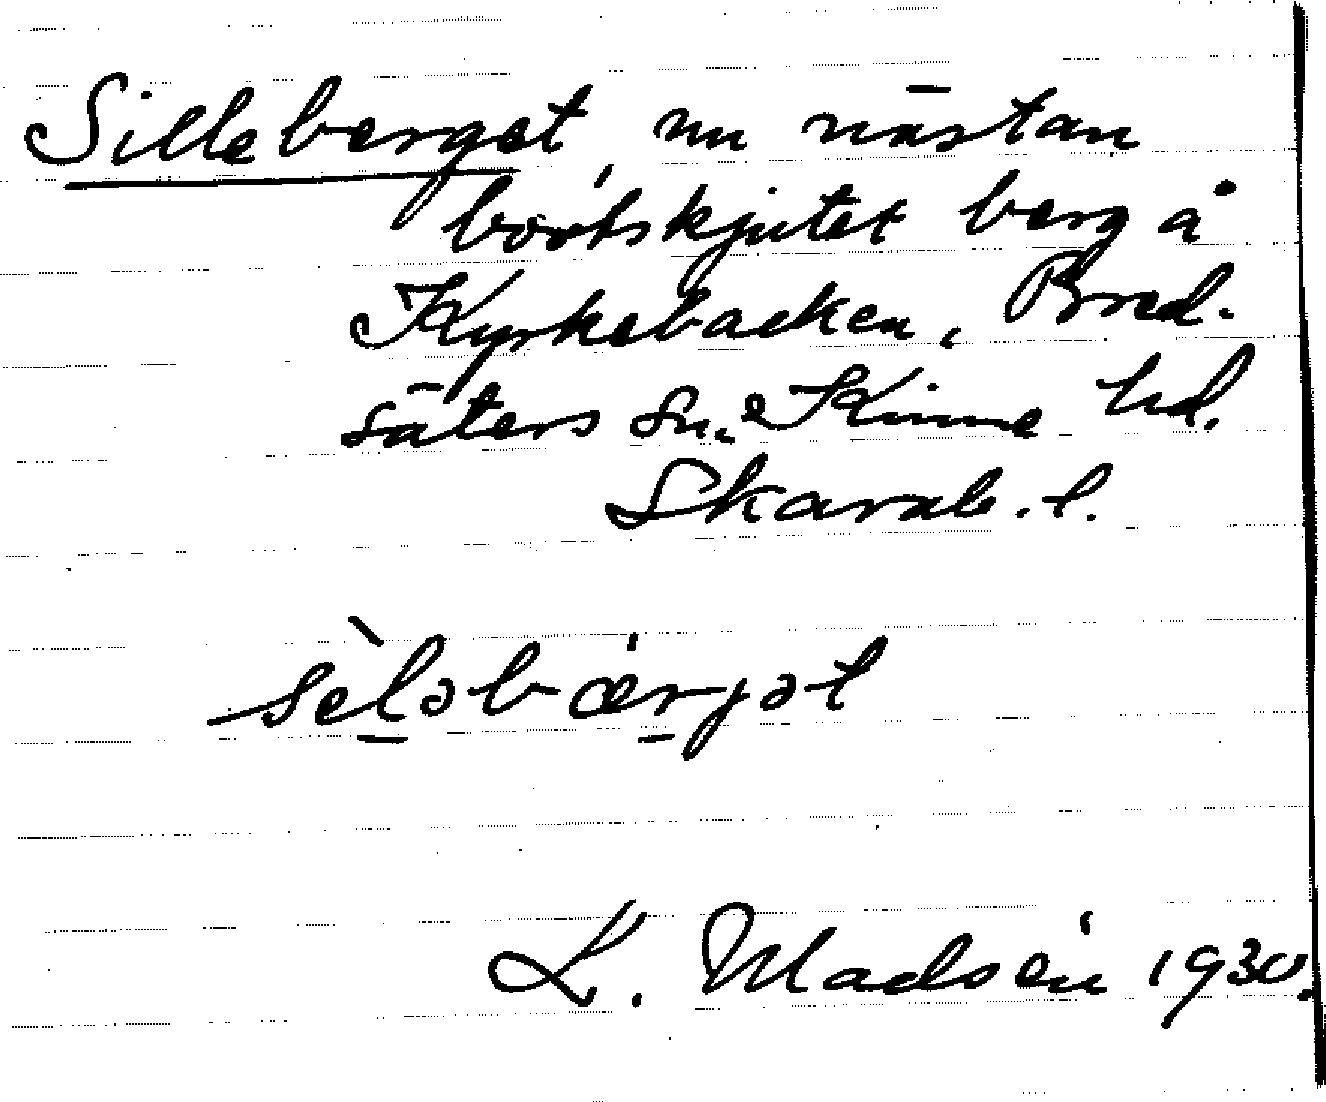 Silleberget, nu nästan
bortskjutet berg å
Kyrkebacken, Bred-
säters sn. Kinne hd.
Skarab. l.
sèləbærjət
L. Madsén 1930.